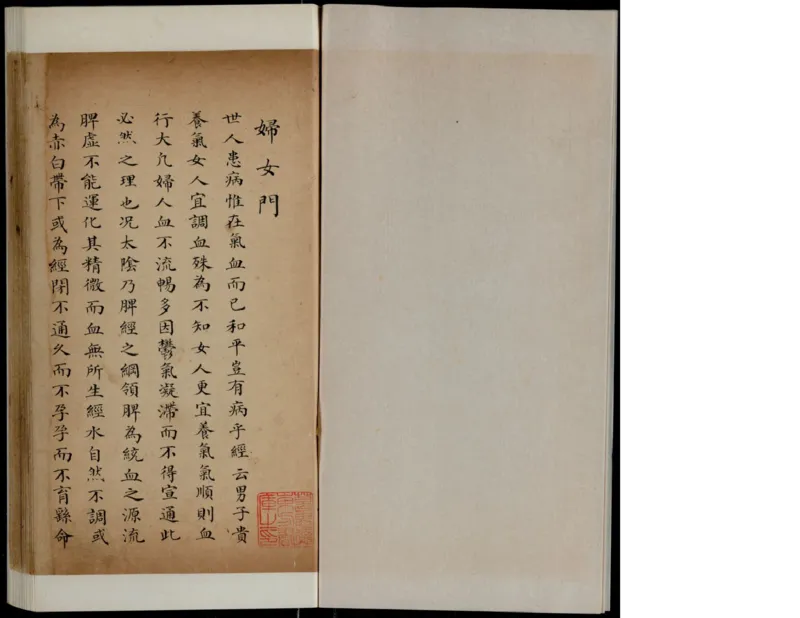 婦女門
世人患病惟在氣血而已和平豈有病乎經云男子貴
養氣女人宜調血殊為不知女人更宜養氣氣順則血
行大凡婦人血不流暢多因鬱氣凝滯而不得宣通此
必然之理也况太陰乃脾經之綱領脾為統血之源流
脾虛不能運化其精微而血無所生經水自然不調或
為赤白帶下或為經閉不通久而不孕孕而不育縣命